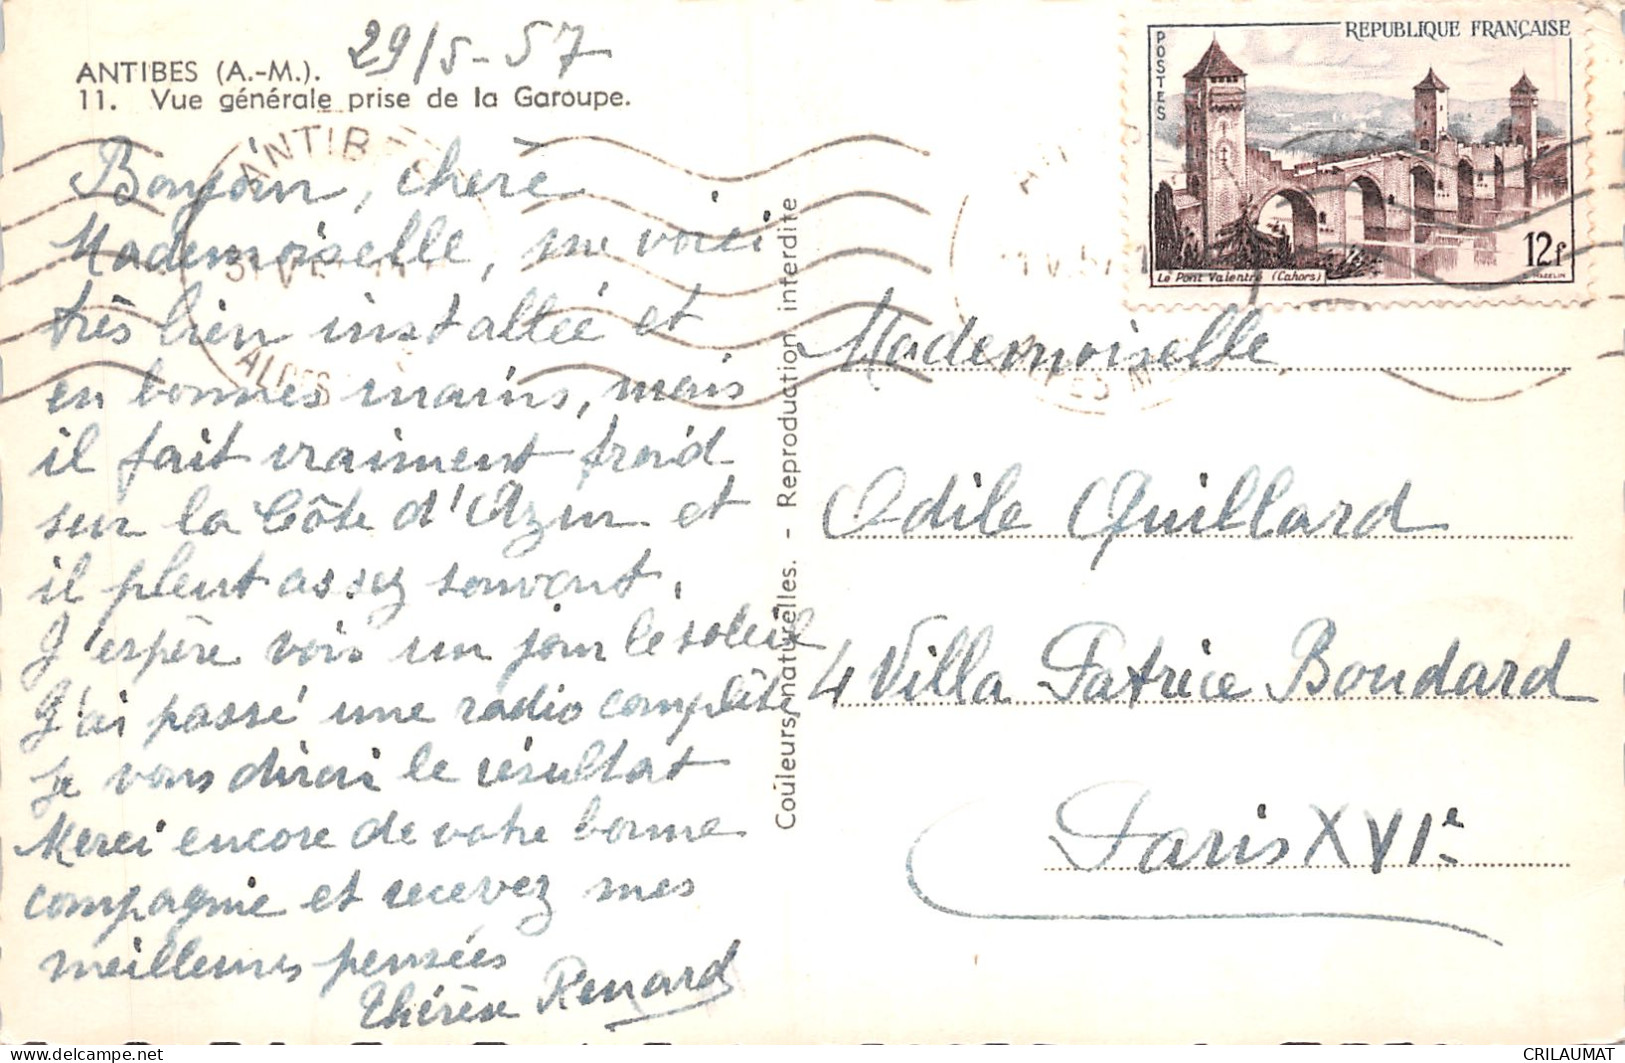 ANTIBES (A.-M.). 29/5-57
11. Vue générale prise de la Garoupe.
Bonjour, chère
Mademoiselle, me voici
très bien installée et
en bonnes mains, mais
il fait vraiment froid
sur la Côte d'Azur et
il pleut assez souvent.
J'espère voir un jour le soleil
J'ai passé une radio complète,
je vous dirai le résultat
Merci encore de votre bonne
compagnie et recevez mes
meilleures pensées
Thérèse Renard
Couleurs naturelles. - Reproduction interdite
REPUBLIQUE FRANÇAISE
POSTES
12f
Le Pont Valentré (Cahors)
ANTIBES
ALPES M
Mademoiselle
Odile Quillard
4 Villa Patrice Boudard
Paris XVIe
CRILAUMAT
delcampe.net